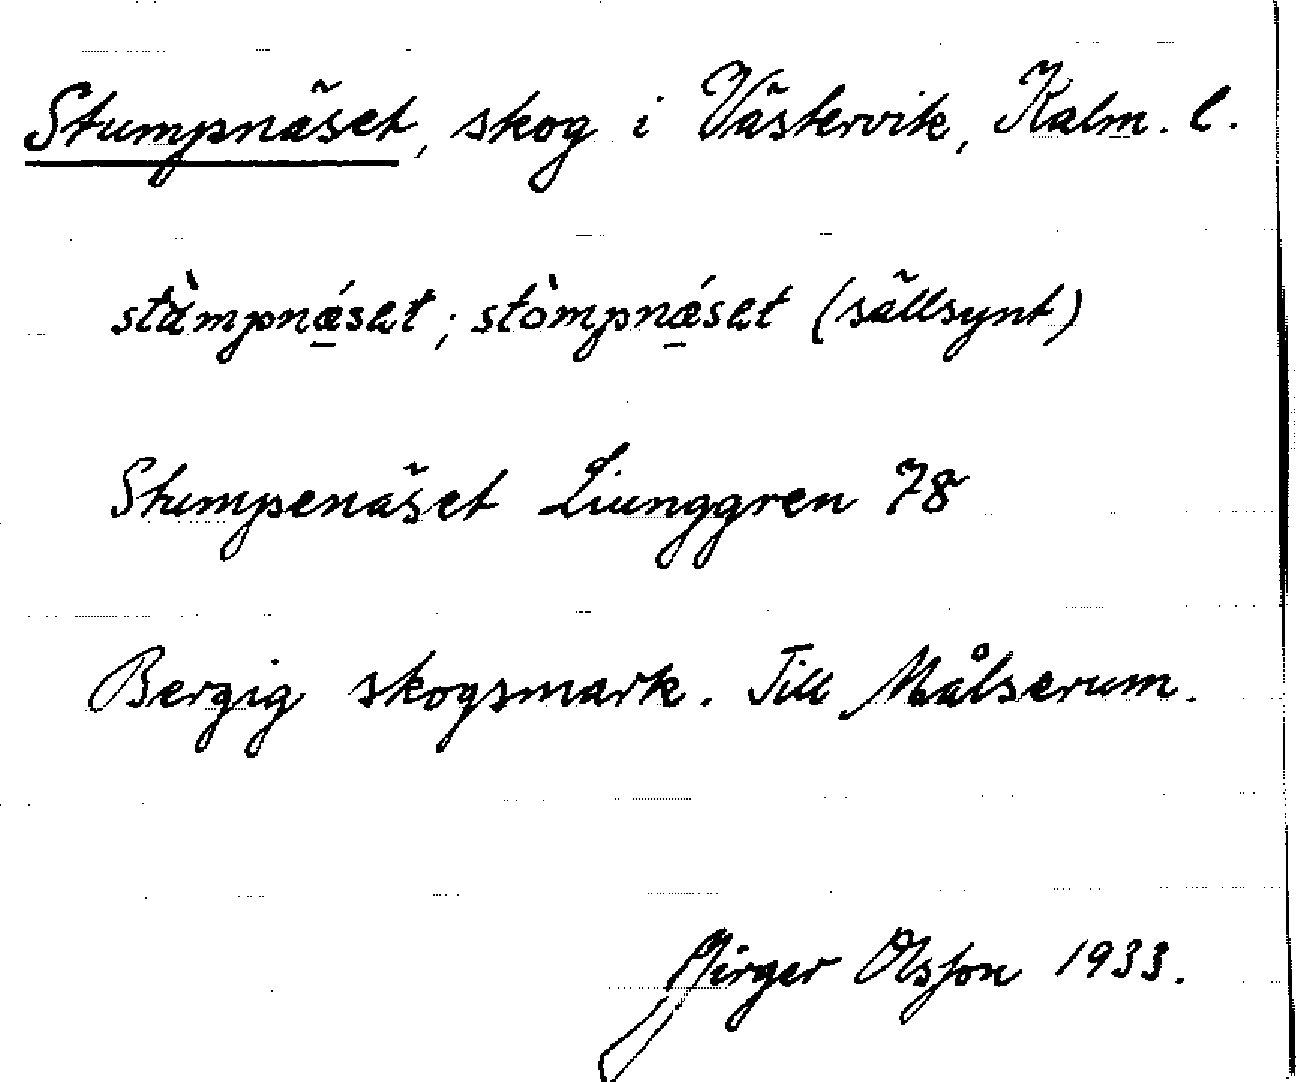 Stumpnäset, skog i Västervik, Kalm. l.
stùmpnǽ̲sət; stòmpnǽ̲sət (sällsynt)
Stumpenäset Liunggren 78
Bergig skogsmark. Till Målserum.
Birger Olsson 1933.